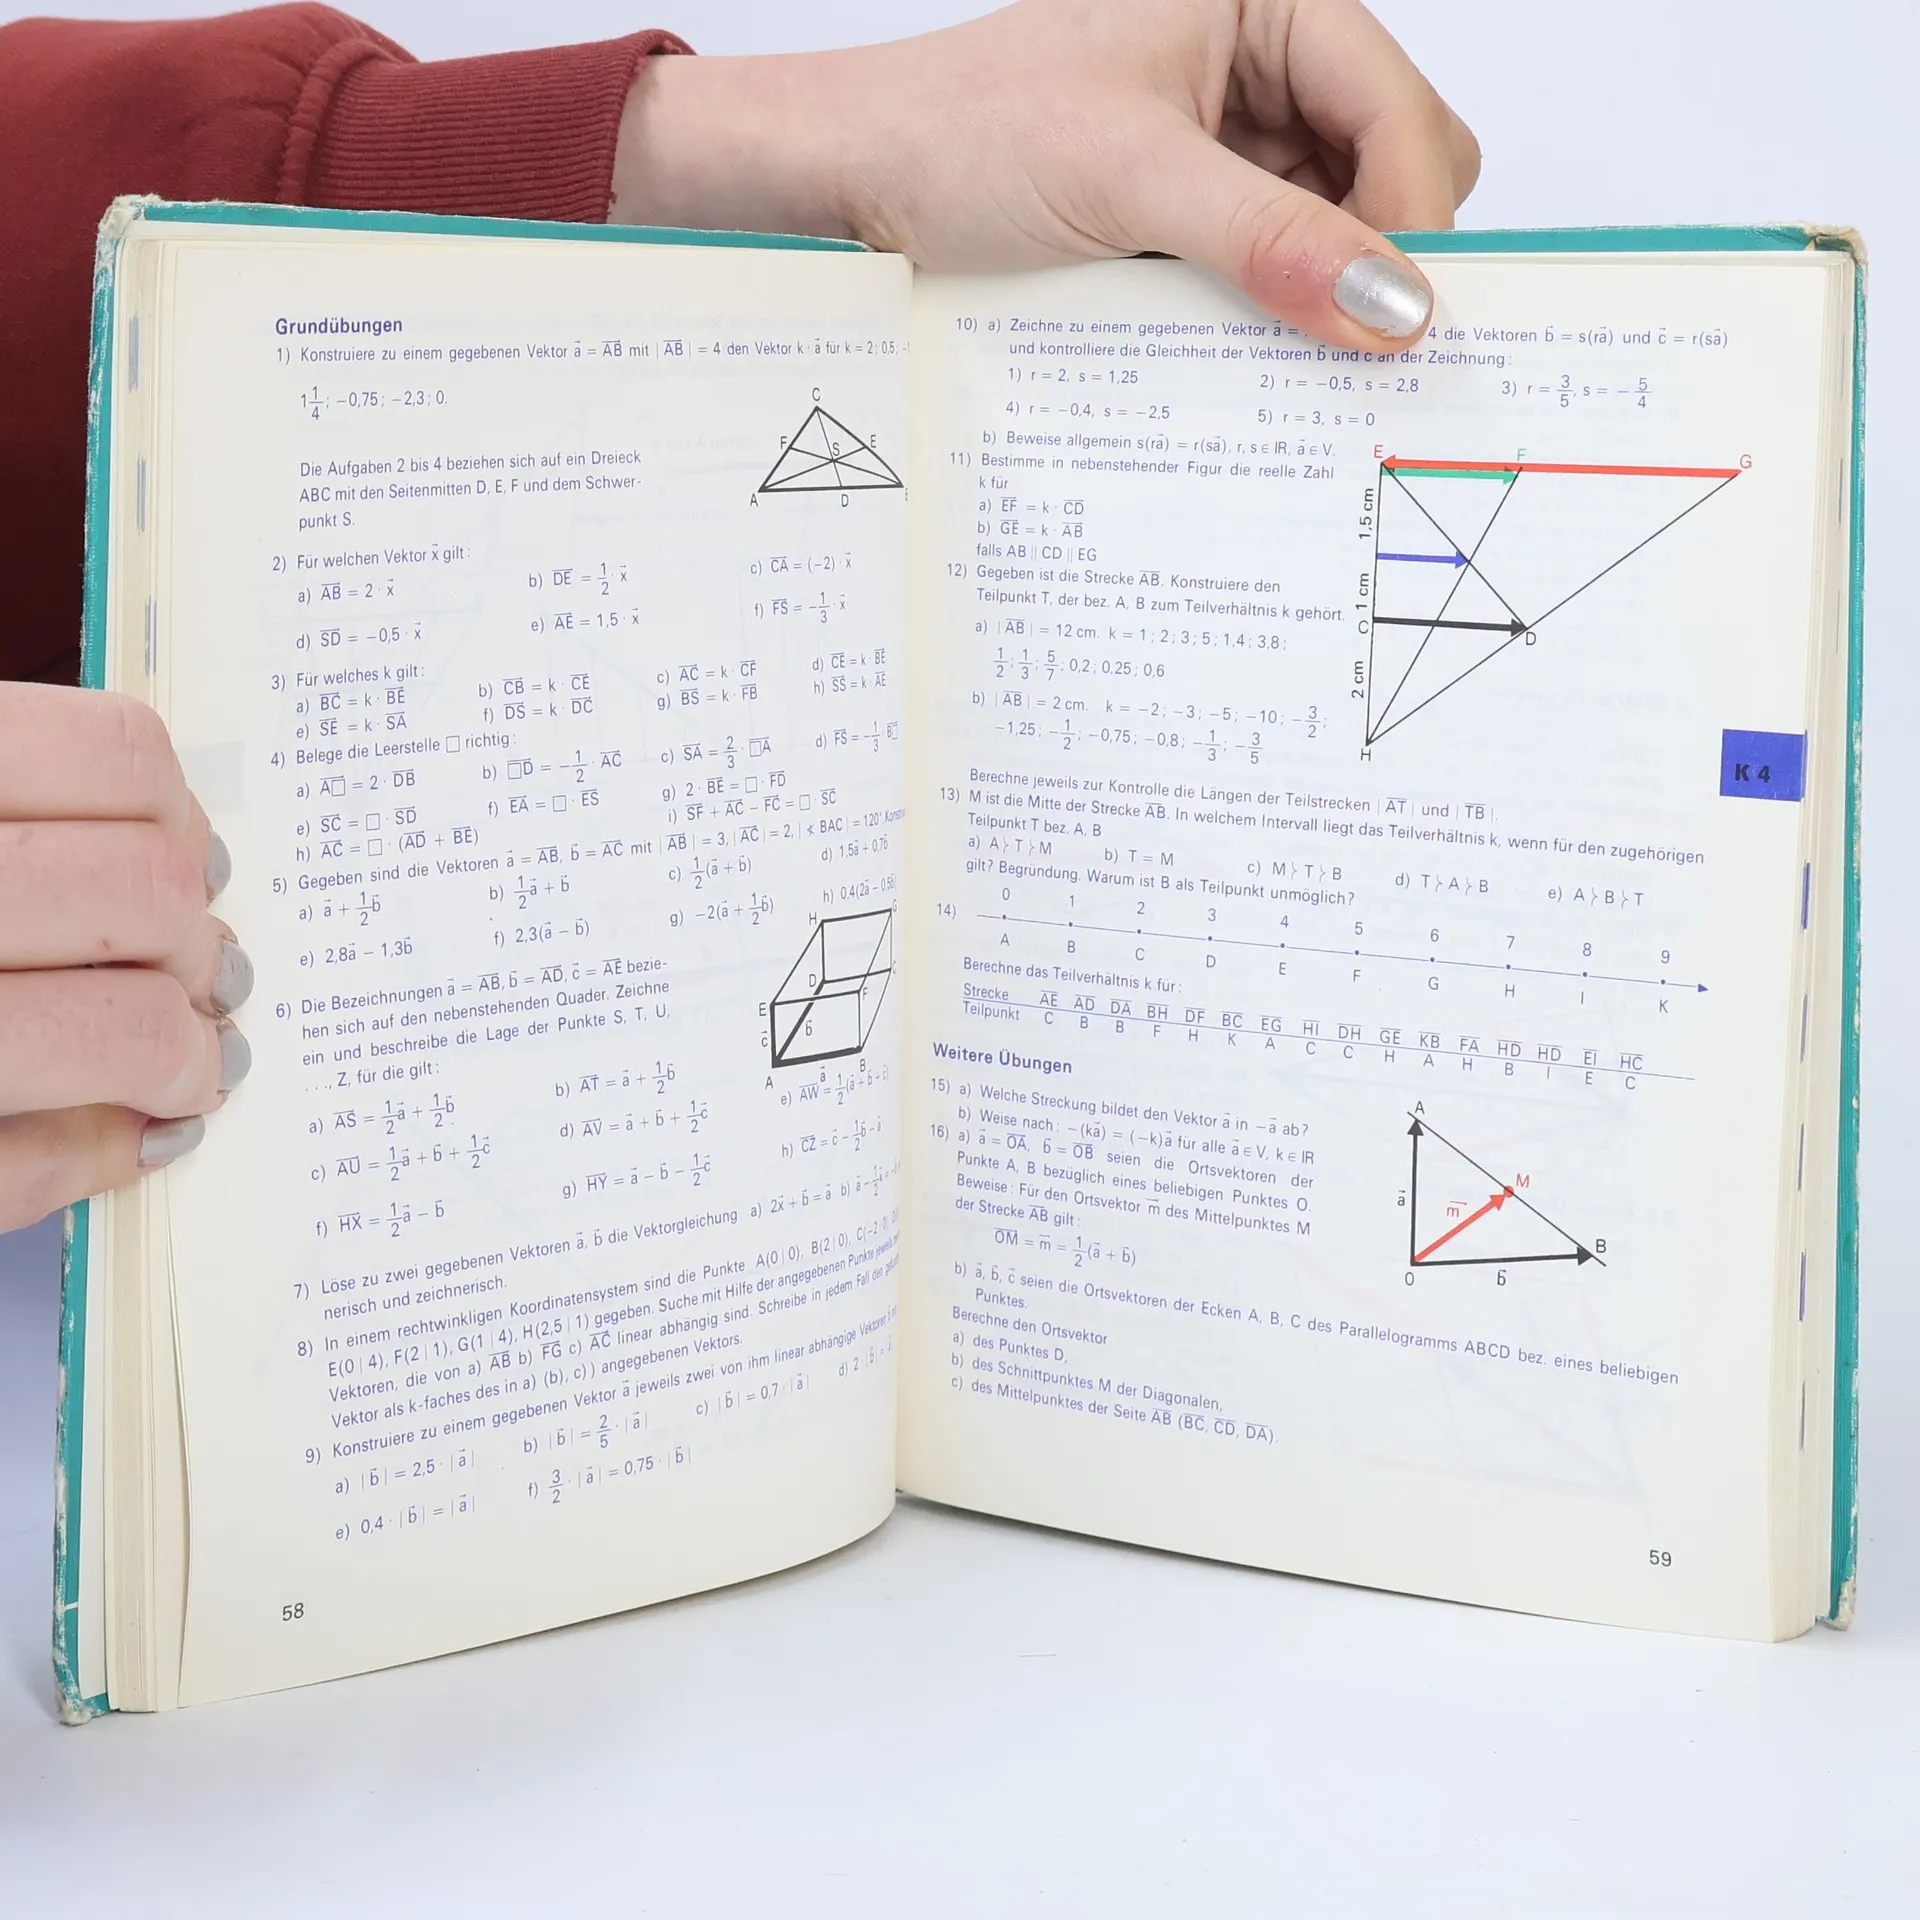 Grundübungen
1) Konstruiere zu einem gegebenen Vektor a⃗ = A͞B⃗ mit | AB⃗ | = 4 den Vektor k · a⃗ für k = 2; 0,5;
1 1/4; −0,75; −2,3; 0.
Die Aufgaben 2 bis 4 beziehen sich auf ein Dreieck
ABC mit den Seitenmitten D, E, F und dem Schwer-
punkt S.
C
F E
S
A D
2) Für welchen Vektor x⃗ gilt:
a) AB⃗ = 2 · x⃗ b) DE⃗ = 1/2 · x⃗ c) CA⃗ = (−2) · x⃗
d) SD⃗ = −0,5 · x⃗ e) AE⃗ = 1,5 · x⃗ f) FS⃗ = −1/3 · x⃗
3) Für welches k gilt:
a) BC⃗ = k · BE⃗ b) CB⃗ = k · CE⃗ c) AC⃗ = k · CF⃗ d) CE⃗ = k · BE⃗
e) SE⃗ = k · SA⃗ f) DS⃗ = k · DC⃗ g) BS⃗ = k · FB⃗ h) SS⃗ = k · AE⃗
4) Belege die Leerstelle □ richtig:
a) A□⃗ = 2 · DB⃗ b) □D⃗ = −1/2 · AC⃗ c) SA⃗ = 2/3 · □A⃗ d) FS⃗ = −1/3 · B□⃗
e) SC⃗ = □ · SD⃗ f) EA⃗ = □ · ES⃗ g) 2 · BE⃗ = □ · FD⃗
h) AC⃗ = □ · (AD⃗ + BE⃗) i) SF⃗ + AC⃗ − FC⃗ = □ · SC⃗
5) Gegeben sind die Vektoren a⃗ = AB⃗, b⃗ = AC⃗ mit | AB⃗ | = 3, | AC⃗ | = 2, | ∢ BAC | = 120°.
a) a⃗ + 1/2 b⃗ b) 1/2 a⃗ + b⃗ c) 1/2 (a⃗ + b⃗) d) 1,5a⃗ + 0,7b⃗
e) 2,8a⃗ − 1,3b⃗ f) 2,3(a⃗ − b⃗) g) −2(a⃗ + 1/2 b⃗) h) 0,4(2a⃗ − 0,5b⃗)
6) Die Bezeichnungen a⃗ = AB⃗, b⃗ = AD⃗, c⃗ = AE⃗ bezie-
hen sich auf den nebenstehenden Quader. Zeichne
ein und beschreibe die Lage der Punkte S, T, U,
. . ., Z, für die gilt:
H G
D C
E F
c⃗ b⃗
A a⃗ B
a) AS⃗ = 1/2 a⃗ + 1/2 b⃗ b) AT⃗ = a⃗ + 1/2 b⃗
c) AU⃗ = 1/2 a⃗ + b⃗ + 1/2 c⃗ d) AV⃗ = a⃗ + b⃗ + 1/2 c⃗ e) AW⃗ = 1/2 (a⃗ + b⃗ + c⃗)
f) HX⃗ = 1/2 a⃗ − b⃗ g) HY⃗ = a⃗ − b⃗ − 1/2 c⃗ h) CZ⃗ = c⃗ − 1/2 b⃗ − a⃗
7) Löse zu zwei gegebenen Vektoren a⃗, b⃗ die Vektorgleichung a) 2x⃗ + b⃗ = a⃗ b)
nerisch und zeichnerisch.
8) In einem rechtwinkligen Koordinatensystem sind die Punkte A(0 | 0), B(2 | 0), C(−2 | 0),
E(0 | 4), F(2 | 1), G(1 | 4), H(2,5 | 1) gegeben. Suche mit Hilfe der angegebenen Punkte jeweils
Vektoren, die von a) AB⃗ b) FG⃗ c) AC⃗ linear abhängig sind. Schreibe in jedem Fall den
Vektor als k-faches des in a) (b), c)) angegebenen Vektors.
9) Konstruiere zu einem gegebenen Vektor a⃗ jeweils zwei von ihm linear abhängige Vektoren b⃗
a) | b⃗ | = 2,5 · | a⃗ | b) | b⃗ | = 2/5 · | a⃗ | c) | b⃗ | = 0,7 · | a⃗ | d) 2 · | b⃗ | =
e) 0,4 · | b⃗ | = | a⃗ | f) 3/2 · | a⃗ | = 0,75 · | b⃗ |
58
10) a) Zeichne zu einem gegebenen Vektor a⃗ = 4 die Vektoren b⃗ = s(ra⃗) und c⃗ = r(sa⃗)
und kontrolliere die Gleichheit der Vektoren b⃗ und c⃗ an der Zeichnung:
1) r = 2, s = 1,25 2) r = −0,5, s = 2,8 3) r = 3/5, s = − 5/4
4) r = −0,4, s = −2,5 5) r = 3, s = 0
b) Beweise allgemein s(ra⃗) = r(sa⃗), r, s ∈ IR, a⃗ ∈ V.
11) Bestimme in nebenstehender Figur die reelle Zahl
k für
a) EF⃗ = k · CD⃗
b) GE⃗ = k · AB⃗
falls AB || CD || EG
E F G
1,5 cm
1 cm
C D
2 cm
H
12) Gegeben ist die Strecke A̅B̅. Konstruiere den
Teilpunkt T, der bez. A, B zum Teilverhältnis k gehört.
a) | A̅B̅ | = 12 cm. k = 1; 2; 3; 5; 1,4; 3,8;
1/2; 1/3; 5/7; 0,2; 0,25; 0,6
b) | A̅B̅ | = 2 cm. k = −2; −3; −5; −10; −3/2;
−1,25; −1/2; −0,75; −0,8; −1/3; −3/5
Berechne jeweils zur Kontrolle die Längen der Teilstrecken | A̅T̅ | und | T̅B̅ |.
13) M ist die Mitte der Strecke A̅B̅. In welchem Intervall liegt das Teilverhältnis k, wenn für den zugehörigen
Teilpunkt T bez. A, B
a) A⟩T⟩M b) T = M c) M⟩T⟩B d) T⟩A⟩B e) A⟩B⟩T
gilt? Begründung. Warum ist B als Teilpunkt unmöglich?
14) 0 1 2 3 4 5 6 7 8 9
A B C D E F G H I K
Berechne das Teilverhältnis k für:
Strecke A̅E̅ A̅D̅ D̅A̅ B̅H̅ D̅F̅ B̅C̅ E̅G̅ H̅I̅ D̅H̅ G̅E̅ K̅B̅ F̅A̅ H̅D̅ H̅D̅ E̅I̅ H̅C̅
Teilpunkt C B B F H K A C C H A H B I E C
Weitere Übungen
15) a) Welche Streckung bildet den Vektor a⃗ in −a⃗ ab?
b) Weise nach: −(ka⃗) = (−k)a⃗ für alle a⃗ ∈ V, k ∈ IR
16) a) a⃗ = OA⃗, b⃗ = OB⃗ seien die Ortsvektoren der
Punkte A, B bezüglich eines beliebigen Punktes O.
Beweise: Für den Ortsvektor m⃗ des Mittelpunktes M
der Strecke A̅B̅ gilt:
OM⃗ = m⃗ = 1/2 (a⃗ + b⃗)
A
M
a⃗ m⃗
B
0 b⃗
b) a⃗, b⃗, c⃗ seien die Ortsvektoren der Ecken A, B, C des Parallelogramms ABCD bez. eines beliebigen
Punktes.
Berechne den Ortsvektor
a) des Punktes D,
b) des Schnittpunktes M der Diagonalen,
c) des Mittelpunktes der Seite A̅B̅ (B̅C̅, C̅D̅, D̅A̅).
K 4
59